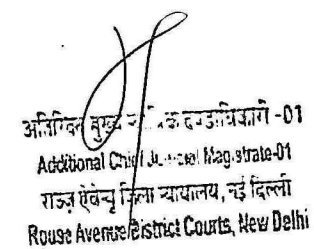 अतिरिक्त मुख्य न्यायिक दण्डाधिकारी -01
Additional Chief Judicial Magistrate-01
राउज़ ऐवेन्यू जिला न्यायालय, नई दिल्ली
Rouse Avenue District Courts, New Delhi